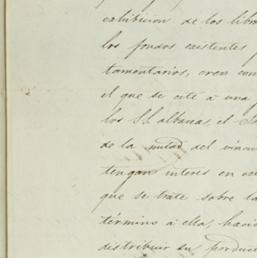 exhibicion de los libro
los fondos existentes
tamentarios, creo con
el que se cite á una
los S.S. albaceas, el
de la mitad del vincu
tengan interes en
que se trate sobre la
término á ella, hacié
distribuir su produc